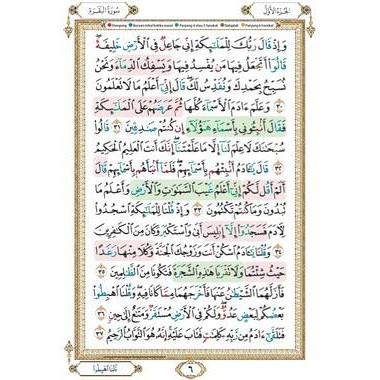 سُورَةُ البَقَرَة
الجُزْءُ الأَوَّل
وَإِذْ قَالَ رَبُّكَ لِلْمَلَٰٓئِكَةِ إِنِّي جَاعِلٌ فِي ٱلْأَرْضِ خَلِيفَةً
قَالُوٓا۟ أَتَجْعَلُ فِيهَا مَن يُفْسِدُ فِيهَا وَيَسْفِكُ ٱلدِّمَآءَ وَنَحْنُ
نُسَبِّحُ بِحَمْدِكَ وَنُقَدِّسُ لَكَ قَالَ إِنِّيٓ أَعْلَمُ مَا لَا تَعْلَمُونَ
٣٠ وَعَلَّمَ ءَادَمَ ٱلْأَسْمَآءَ كُلَّهَا ثُمَّ عَرَضَهُمْ عَلَى ٱلْمَلَٰٓئِكَةِ
فَقَالَ أَنۢبِـُٔونِي بِأَسْمَآءِ هَٰٓؤُلَآءِ إِن كُنتُمْ صَٰدِقِينَ ٣١ قَالُوا۟
سُبْحَٰنَكَ لَا عِلْمَ لَنَآ إِلَّا مَا عَلَّمْتَنَآ إِنَّكَ أَنتَ ٱلْعَلِيمُ ٱلْحَكِيمُ
٣٢ قَالَ يَٰٓـَٔادَمُ أَنۢبِئْهُم بِأَسْمَآئِهِمْ فَلَمَّآ أَنۢبَأَهُم بِأَسْمَآئِهِمْ قَالَ
أَلَمْ أَقُل لَّكُمْ إِنِّيٓ أَعْلَمُ غَيْبَ ٱلسَّمَٰوَٰتِ وَٱلْأَرْضِ وَأَعْلَمُ مَا
تُبْدُونَ وَمَا كُنتُمْ تَكْتُمُونَ ٣٣ وَإِذْ قُلْنَا لِلْمَلَٰٓئِكَةِ ٱسْجُدُوا۟
لِءَادَمَ فَسَجَدُوٓا۟ إِلَّآ إِبْلِيسَ أَبَىٰ وَٱسْتَكْبَرَ وَكَانَ مِنَ ٱلْكَٰفِرِينَ
٣٤ وَقُلْنَا يَٰٓـَٔادَمُ ٱسْكُنْ أَنتَ وَزَوْجُكَ ٱلْجَنَّةَ وَكُلَا مِنْهَا رَغَدًا
حَيْثُ شِئْتُمَا وَلَا تَقْرَبَا هَٰذِهِ ٱلشَّجَرَةَ فَتَكُونَا مِنَ ٱلظَّٰلِمِينَ
٣٥ فَأَزَلَّهُمَا ٱلشَّيْطَٰنُ عَنْهَا فَأَخْرَجَهُمَا مِمَّا كَانَا فِيهِ وَقُلْنَا ٱهْبِطُوا۟
بَعْضُكُمْ لِبَعْضٍ عَدُوٌّ وَلَكُمْ فِي ٱلْأَرْضِ مُسْتَقَرٌّ وَمَتَٰعٌ إِلَىٰ حِينٍ ٣٦
فَتَلَقَّىٰٓ ءَادَمُ مِن رَّبِّهِۦ كَلِمَٰتٍ فَتَابَ عَلَيْهِ إِنَّهُۥ هُوَ ٱلتَّوَّابُ ٱلرَّحِيمُ ٣٧
قُلْنَا اهْبِطُوا
٦